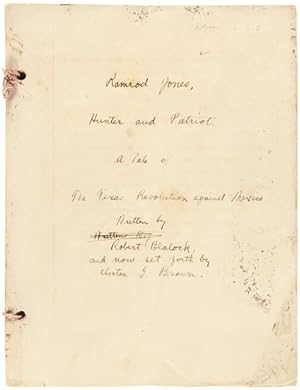 Ramrod Jones,
Hunter and Patriot.
A Tale o
The Texas Revolution against Mexico
Written by
Written By
Robert Blalock,
and now set forth by
Clinton G. Brown.